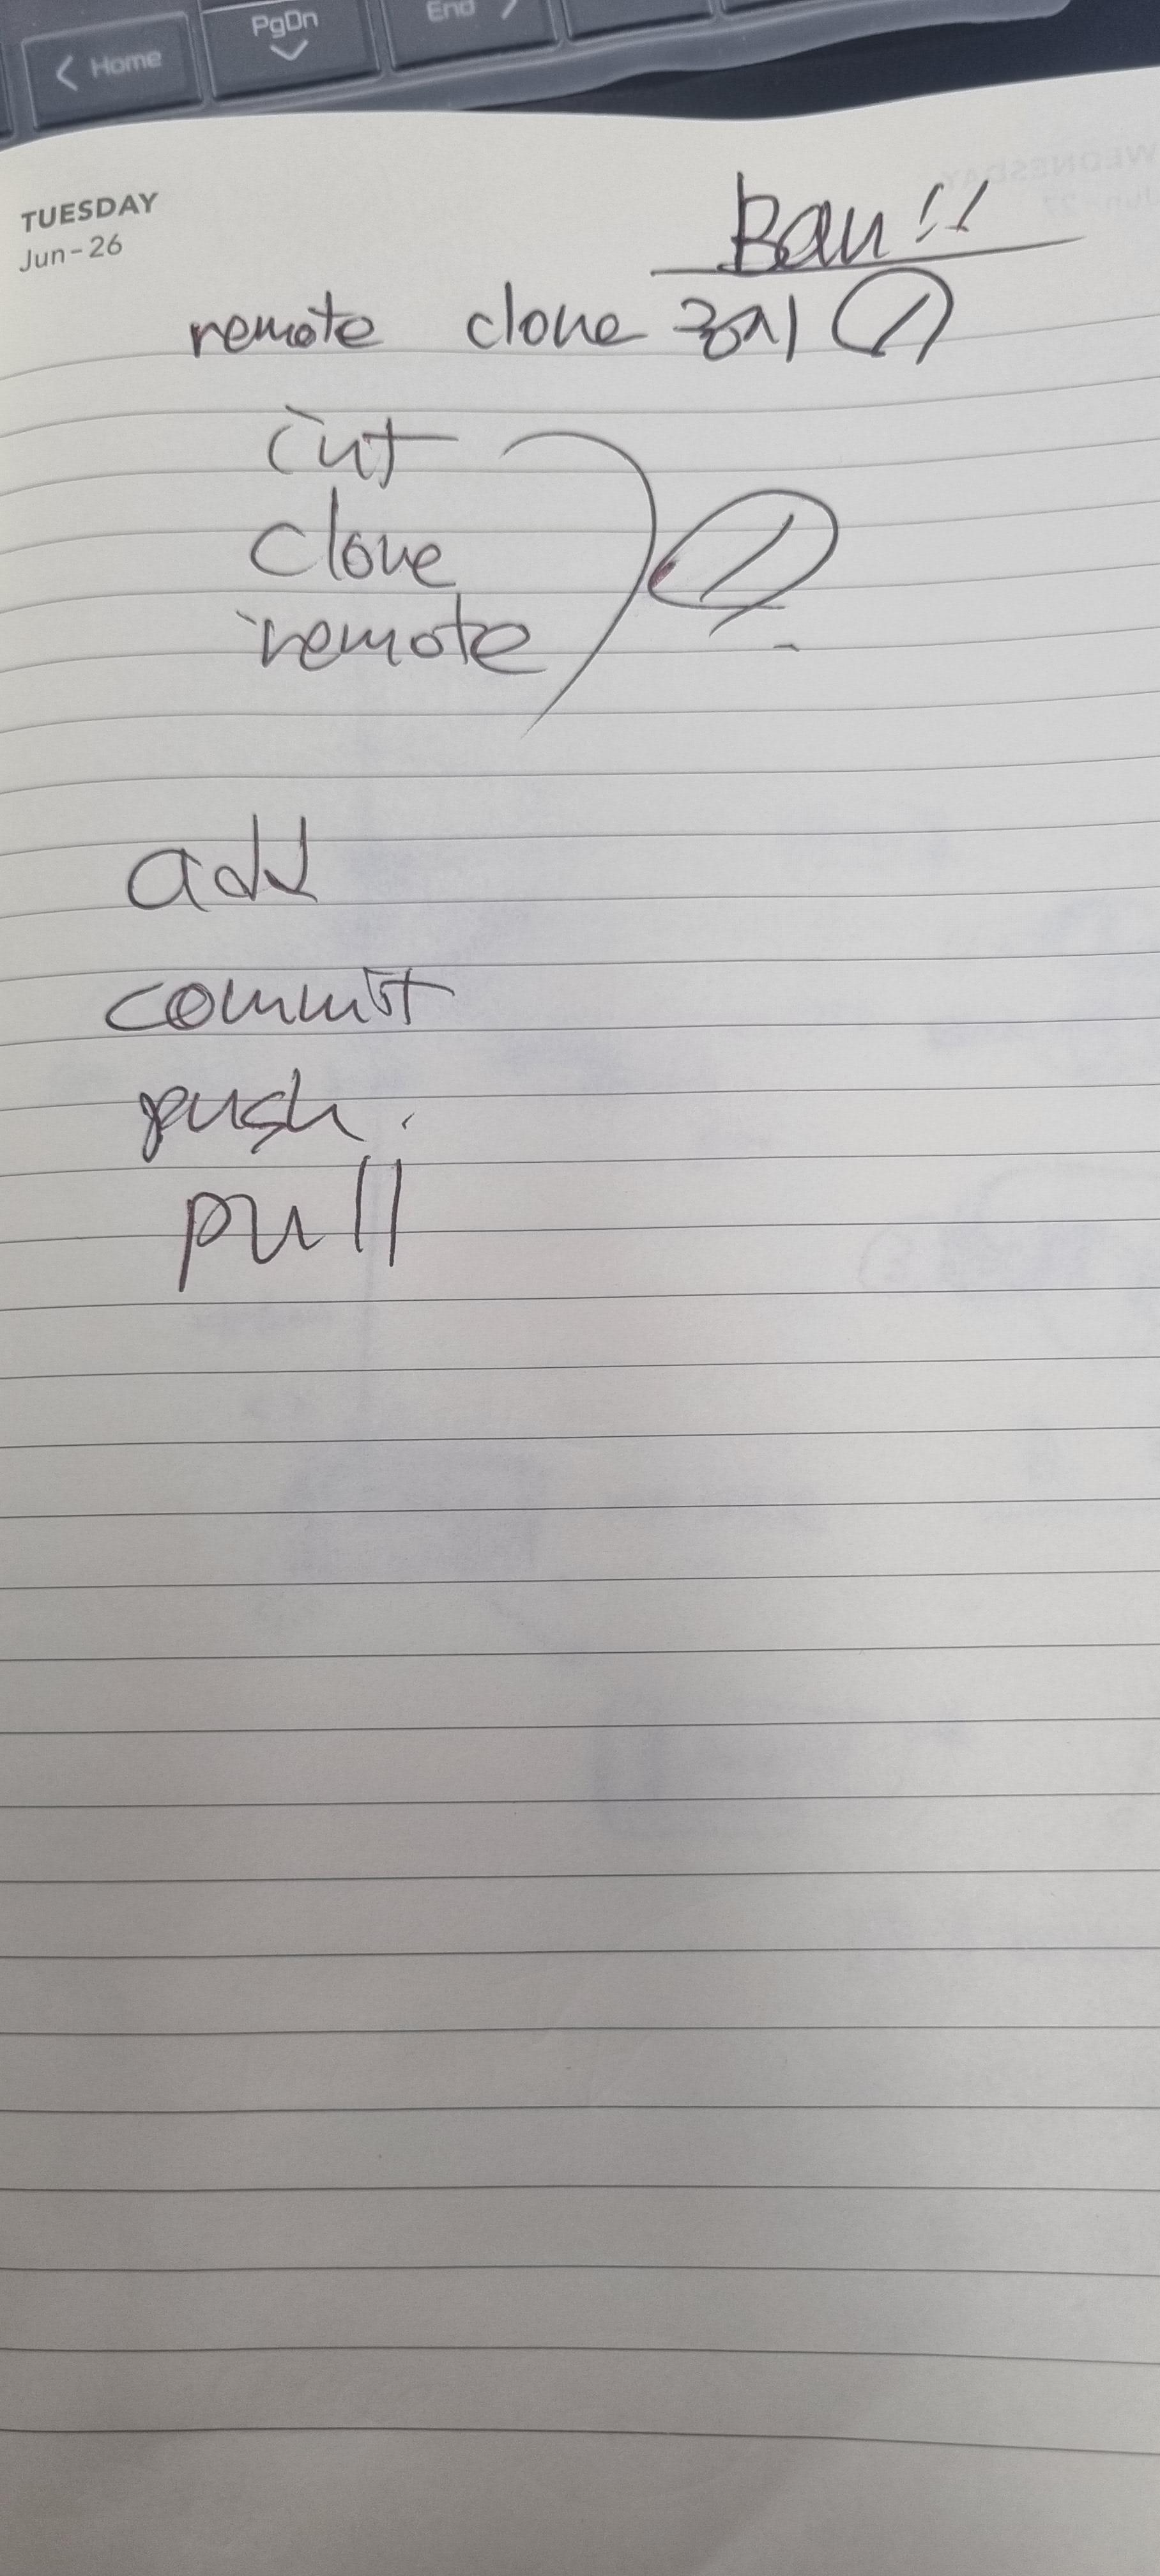 Home PgDn End
TUESDAY
Jun-26
Ban!!
remote clone 금지
init
clone
remote
add
commit
push.
pull